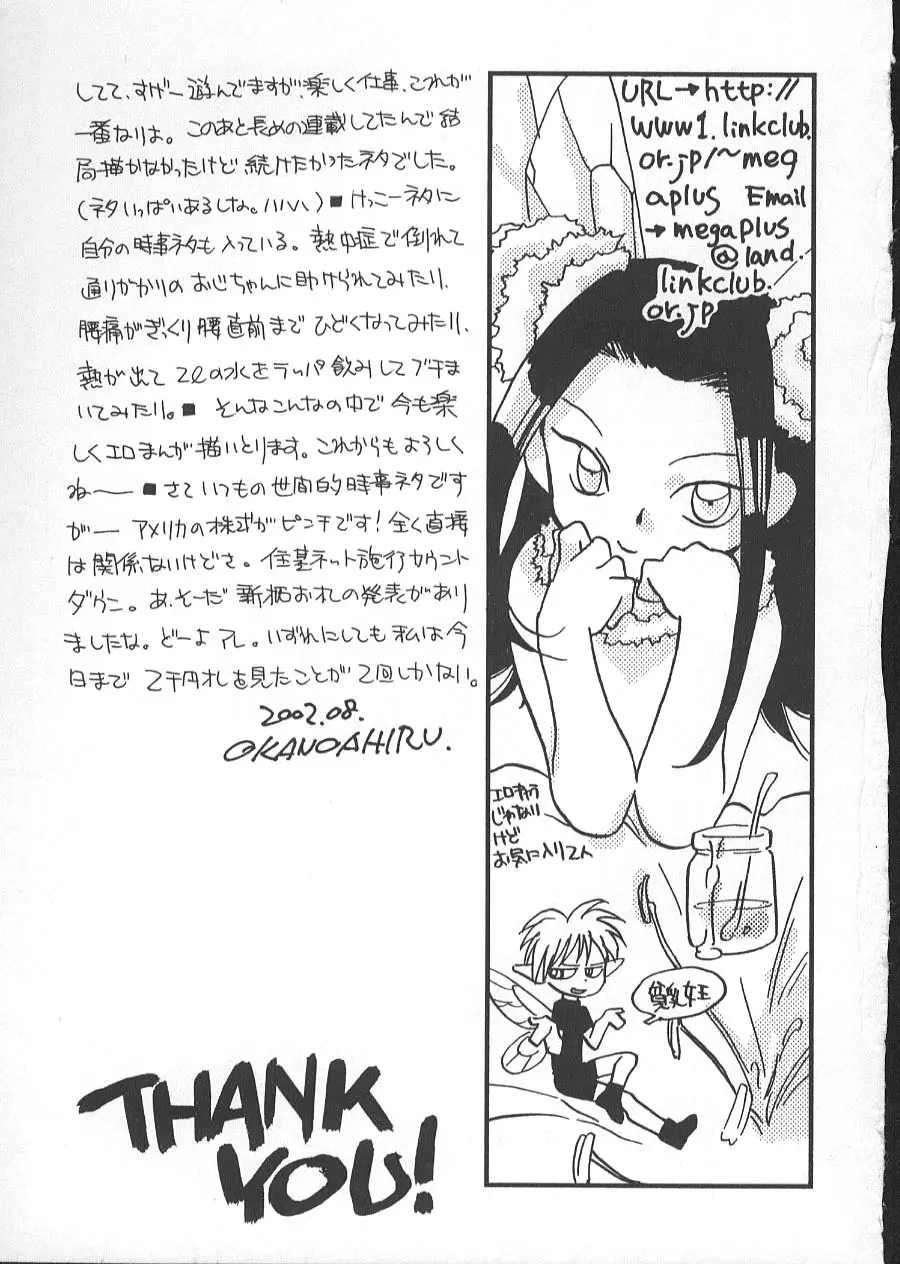 してて、すげー遊んでますが、楽しく仕事、これが
一番なりよ。このあと長めの連載してたんで結
局描かなかったけど続けたかったネタでした。
(ネタいっぱいあるしな。ハハハ、)■けっこーネタに
自分の時事ネタも入っている。熱中症で倒れて
通りかかりのおじちゃんに助けられてみたり、
腰痛がぎっくり腰直前までひどくなってみたり、
熱が出て2ℓの水をラッパ飲みしてブチま
いてみたり。■そんなこんなの中で今も楽
しくエロまんが描いとります。これからもよろしく
ね〜■さていつもの世間的時事ネタです
がー アメリカの株式がピンチです!全く直接
は関係ないけどさ。住基ネット施行カウント
ダウン。あ、そーだ新柄お札の発表があり
ましたな。どーよアレ。いずれにしても私は今
日まで2千円札を見たことが2回しかない。
2002.08.
OKANOAHIRU.
THANK
YOU!
URL→http://
www1.linkclub.
or.jp/~meg
aplus Email
→megaplus
@land.
linkclub.
or.jp
エロキャラ
じゃない
けど
お気に入り2人
貧乳女王